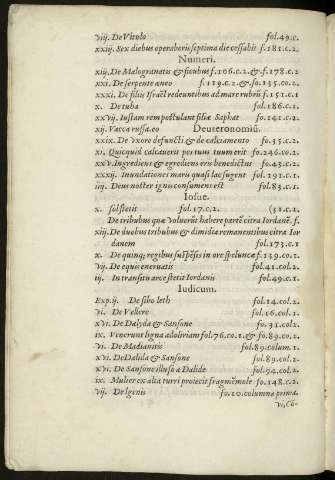 viij. De Vitolo fol.49.c.
xxiij. Sex diebus operaberis septima die cessabis f.181.c.2.
Numeri.
xiij. De Malogranatis & ficubus f.106.c.2. & f.178.c.2
xxi. De serpente æneo f.119.c.2. & fo.135.co.2.
xxxi. De filiis Israël redeuntibus ad mare rubrũ f.151.c.1
x. De tuba fol.186.c.1.
xxvij. Iustam rem postulant filiæ Saphat fo.141.c.2.
xij. Vacca russa.eo Deuteronomiũ.
xxix. De vxore defuncti & de calciamento fo.35.c.2.
xi. Quicquid calcauerit pes tuus tuum erit fo.246.co.2.
xxv. Ingrediens & egrediens eru benedictus fo.43.c.2.
xxxij. Inundationes maris quasi lac sugent fol.191.c.1.
iiij. Deus noster ignis consumens est fol.83.c.1.
Iosue.
x. sol stetit fol.17.c.2. (31.c.1.
De tribubus quæ voluerũt habere partẽ citra Iordanẽ. f.
xiij. De duobus tribubus & dimidia remanentibus citra Ior
danem fol.173.c.1
x. De quinq; regibus suspẽsis in ore spelunca f.139.co.2.
vij. De equis eneruatis fol.41.col.2.
iij. In transitu arce stetit Iordanis fol.49.c.1.
Iudicum.
Exp.ij. De sibo leth fol.14.col.2.
vi. De Vellere fol.16.col.1.
xvi. De Dalyda & Sansone fo.31.col.2.
ix. Venerunt ligna ad oliviam fol.76.co.1. & fo.89.co.2.
vi. De Madianitis fol.89.colum.1.
xvi. De Dalida & Sansone fol.89.col.2.
xvi. De Sansone illuso a Dalide fol.94.col.2.
ix. Mulier ex alta turri proiecit fragmẽ molæ fo.148.c.2.
vij. De Igenis fo.10.columna prima.
vi, Cõ-